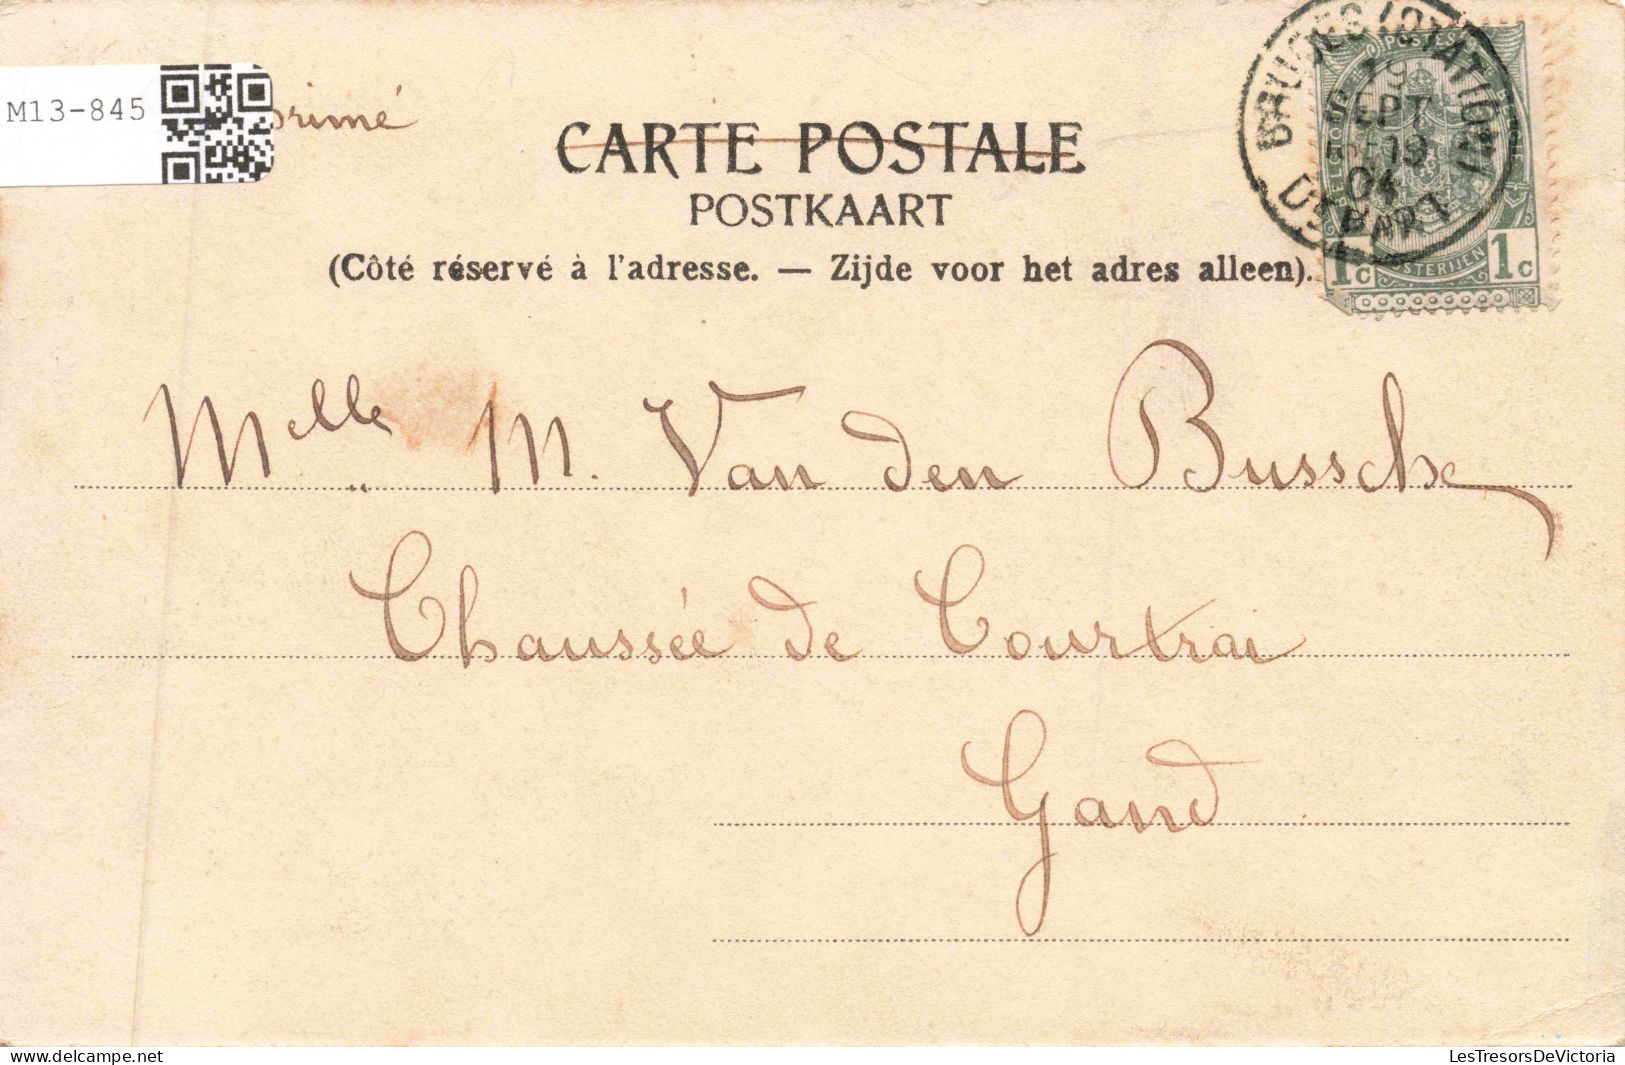 M13-845
CARTE POSTALE
POSTKAART
(Côté réservé à l'adresse. — Zijde voor het adres alleen).
BRUGES (STATION)
19
SEPT
19
04
DEPART
POSTES
1c 1c
Melle M. Van den Bussche
Chaussée de Courtrai
Gand
LesTresorsDeVictoria
www.delcampe.net